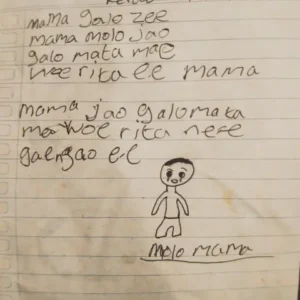 mama galo zee
mama molo jao
galo mata mae
woe rita ee mama
mama jao galo mata
woe rita nefe
gaengao ee
molo mama